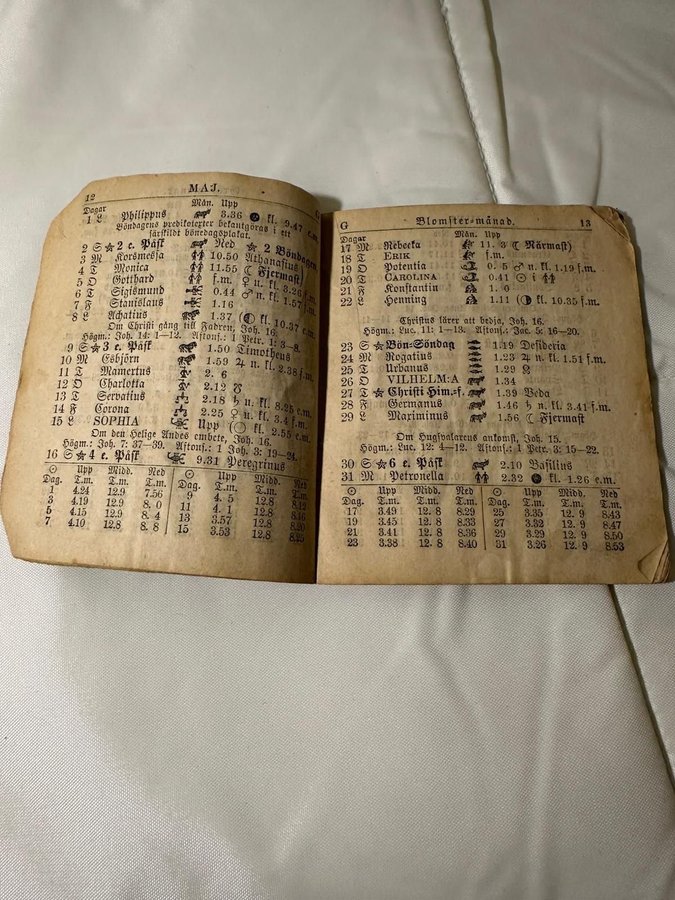 12 MAJ.
Dagar Mån. Upp
1 L Philippus 3.36 kl. 9.47 e.m.
Böndagens predikotexter bekantgöras i ett
särskildt bönedagsplakat.
2 S 2 e. Påsk Ned 2 Böndagen
3 M Korsmesja 10.50 Athanasius
4 T Monica 11.55 ☾ Fjermast
5 O Gotthard f.m. ♀ n. kl. 3.26
6 T Sigismund 0.44 ♂ n. kl. 1.57 f.m.
7 F Stanislaus 1.16
8 L Achatius 1.37 kl. 10.37 e.m.
Om Christi gång till Fadren, Joh. 16.
Högm.: Joh. 14: 1—12. Aftons.: 1 Petr. 1: 3—8.
9 S 3 e. Påsk 1.50 Timotheus
10 M Esbjörn 1.59 ♃ n. kl. 2.38 f.m.
11 T Mamertus 2. 6
12 O Charlotta 2.12 ☋
13 T Servatius 2.18 ♄ n. kl. 8.25 e.m.
14 F Corona 2.25 ♀ n. kl. 3.4 f.m.
15 L SOPHIA Upp kl. 2.55 e.m.
Om den Helige Andes embete, Joh. 16.
Högm.: Joh. 7: 37—39. Aftons.: 1 Joh. 3: 19—24.
16 S 4 e. Påsk 9.31 Peregrinus
☉ Upp Midd. Ned ☉ Upp Midd. Ned
Dag. T.m. T.m. T.m. Dag. T.m. T.m. T.m.
1 4.24 12.9 7.56 9 4. 5 12.8
3 4.19 12.9 8. 0 11 4. 1 12.8
5 4.15 12.9 8. 4 13 3.57 12.8
7 4.10 12.8 8. 8 15 3.53 12.8
G Blomster-månad. 13
Dagar Mån. Upp
17 M Rebecka 11. 3 ☾ Närmast
18 T ERIK f.m.
19 O Potentia 0. 5 ♂ n. kl. 1.19 f.m.
20 T CAROLINA 0.41 ☉ i
21 F Konstantin 1. 0
22 L Henning 1.11 kl. 10.35 f.m.
Christus lärer att bedja, Joh. 16.
Högm.: Luc. 11: 1—13. Aftons.: Jac. 5: 16—20.
23 S Bön-Söndag 1.19 Desideria
24 M Rogatius 1.23 ♃ n. kl. 1.51 f.m.
25 T Urbanus 1.29 ☊
26 O VILHELM:A 1.34
27 T Christi Him.-f. 1.39 Beda
28 F Germanus 1.46 ♄ n. kl. 3.41 f.m.
29 L Maximinus 1.56 ☾ Fjermast
Om Hugsvalarens ankomst, Joh. 15.
Högm.: Luc. 12: 4—12. Aftons.: 1 Petr. 3: 15—22.
30 S 6 e. Påsk 2.10 Basilius
31 M Petronella 2.32 kl. 1.26 e.m.
☉ Upp Midd. Ned ☉ Upp Midd. Ned
Dag. T.m. T.m. T.m. Dag. T.m. T.m. T.m.
17 3.49 12. 8 8.29 25 3.35 12. 9 8.43
19 3.45 12. 8 8.33 27 3.32 12. 9 8.47
21 3.41 12. 8 8.36 29 3.29 12. 9 8.50
23 3.38 12. 8 8.40 31 3.26 12. 9 8.53